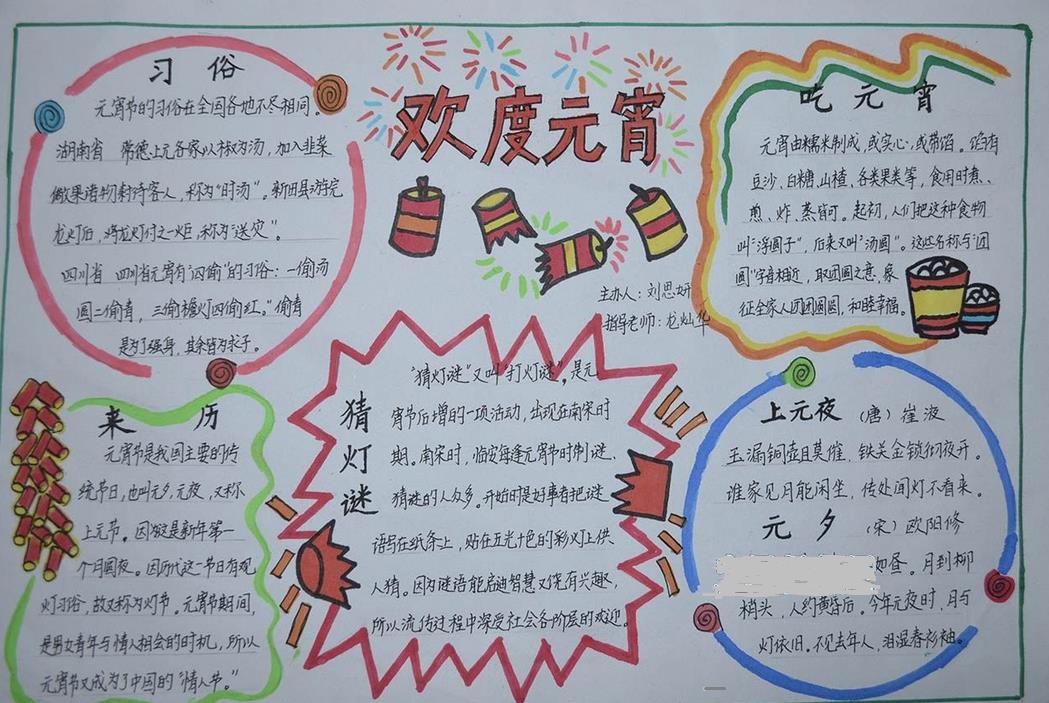 欢度元宵
主办人：刘思妍
指导老师：龙灿华
习俗
元宵节的习俗在全国各地不尽相同。
湖南省 常德上元各家以椒为汤，加入韭菜
微果诸物剩待客人，称为“时汤”。新田县游完
龙灯后，将龙灯付之一炬，称为“送灾”。
四川省 四川省元宵有“四偷”的习俗：一偷汤
圆二偷青，三偷檐灯四偷红。”偷青
是为了强身，其余皆为求子。
吃元宵
元宵由糯米制成，或实心，或带馅。馅有
豆沙、白糖、山楂、各类果类等，食用时煮、
煎、炸、蒸皆可。起初，人们把这种食物
叫“浮圆子”，后来又叫“汤圆”。这些名称与“团
圆”字音相近，取团圆之意，象
征全家人团团圆圆，和睦幸福。
来历
元宵节是我国主要的传
统节日，也叫元夕，元夜，又称
上元节。因为这是新年第一
个月圆夜。因历代这一节日有观
灯习俗，故又称为灯节。元宵节期间，
是男女青年与情人相会的时机，所以
元宵节又成为了中国的“情人节。”
猜灯谜
“猜灯谜”又叫“打灯谜”，是元
宵节后增的一项活动，出现在南宋时
期。南宋时，临安每逢元宵节时制谜、
猜谜的人众多。开始时是好事者把谜
语写在纸条上，贴在五光十色的彩灯上供
人猜。因为谜语能启迪智慧又饶有兴趣，
所以流传过程中深受社会各阶层的欢迎。
上元夜（唐）崔液
玉漏铜壶且莫催，铁关金锁彻夜开。
谁家见月能闲坐，传处闻灯不看来。
元夕（宋）欧阳修
如昼。月到柳
梢头，人约黄昏后。今年元夜时，月与
灯依旧。不见去年人，泪湿春衫袖。